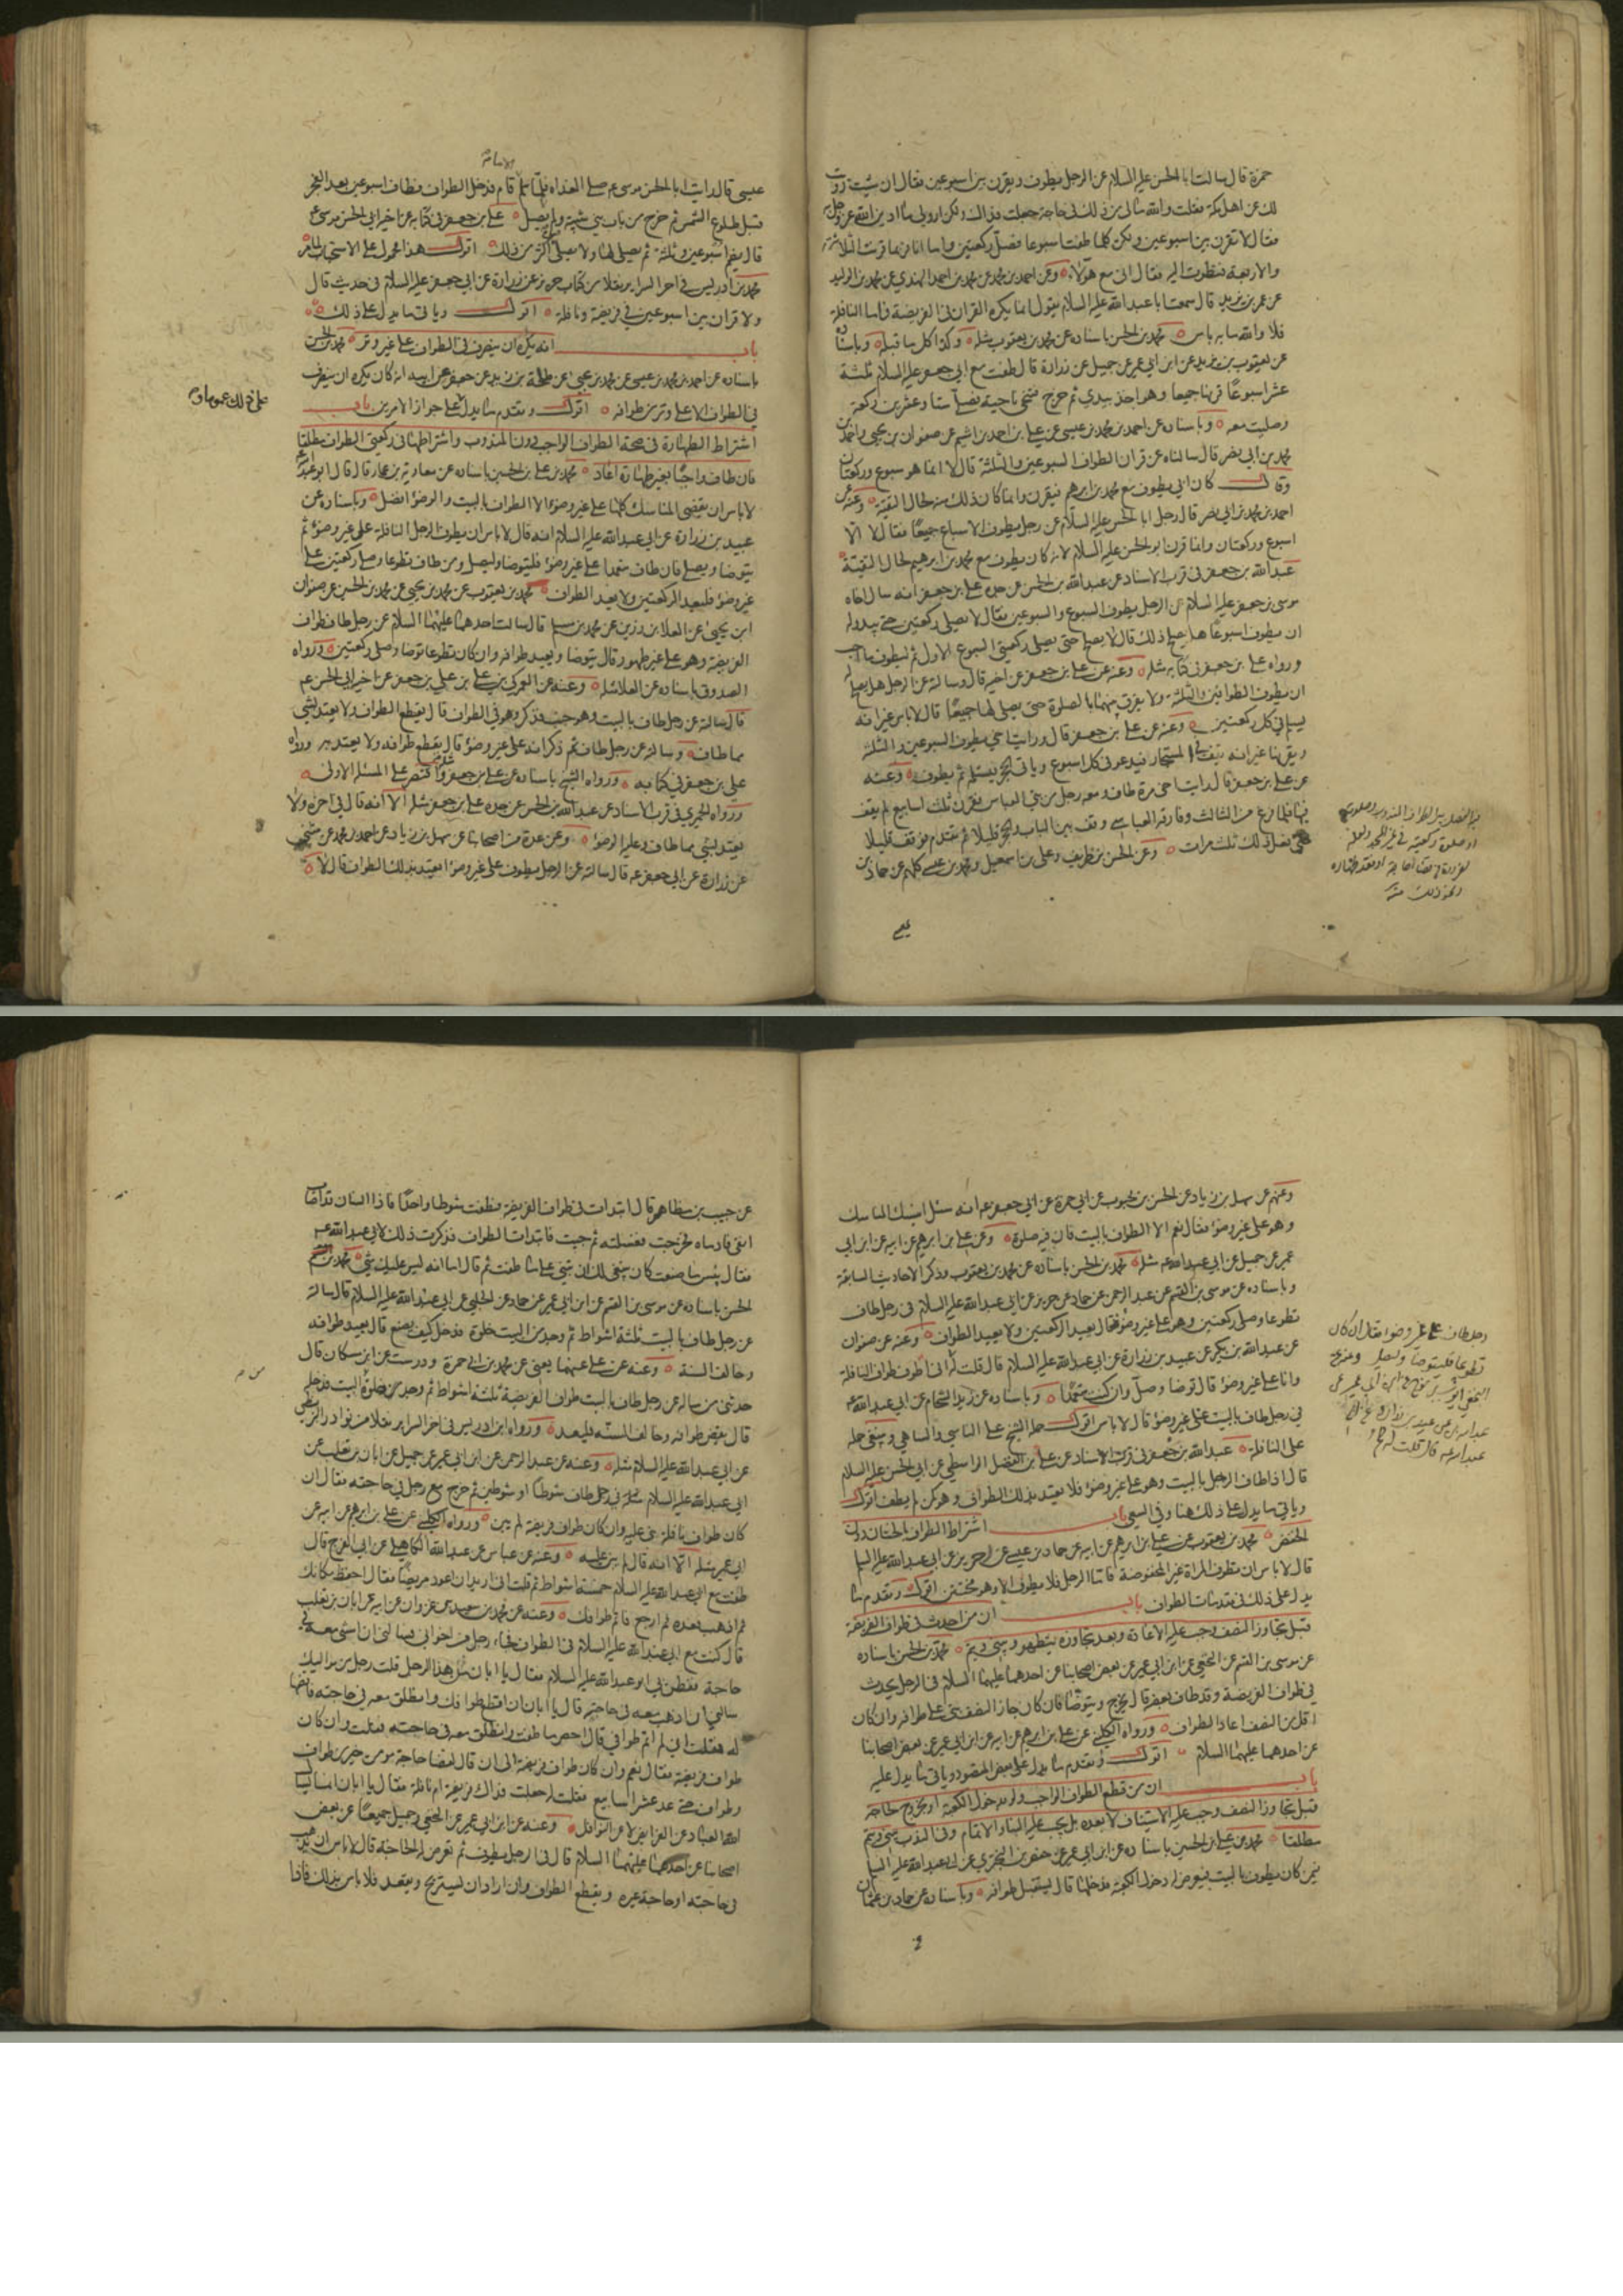 حمزة قال سالت ابا الحسن عليه السلام عن الرجل يطوف ويقرن بين اسبوعين فقال ان شئت رويت
لك عن اهل مكة فقلت والله مالي من ذلك في حاجة جعلت فداك ولكن ارو لي ما ادين الله عز وجل به
فقال لا تقرن بين اسبوعين ولكن كلما طفت اسبوعا فصل ركعتين واما انا فربما قرنت الثلاثة
والاربعة فنظرت اليه فقال اني مع هؤلاء وعن احمد بن محمد عن محمد بن احمد النهدي عن محمد بن الوليد
عن عمر بن يزيد قال سمعت ابا عبد الله عليه السلام يقول انما يكره القران في الفريضة فاما النافلة
فلا والله ما به باس محمد بن الحسن باسناده عن محمد بن يعقوب مثله وكذا كل ما قبله وباسناده
عن يعقوب بن يزيد عن ابن ابي عمير عن جميل عن زرارة قال طفت مع ابي جعفر عليه السلام ثلثة
عشر اسبوعا قرنها جميعا وهو اخذ بيدي ثم خرج فتنحى ناحية فصلى ستا وعشرين ركعة
وصليت معه وباسناده عن احمد بن محمد بن عيسى عن علي بن احمد بن اشيم عن صفوان بن يحيى واحمد بن
محمد بن ابي نصر قال سالناه عن قران الطواف السبوعين والثلثة قال لا انما هو سبوع وركعتان
وقال كان ابي يطوف مع محمد بن ابرهيم فيقرن وانما كان ذلك منه لحال التقية وعنه عن
احمد بن محمد بن ابي نصر قال سال رجل ابا الحسن عليه السلام عن رجل يطوف الاسباع جميعا فقال لا الا
اسبوع وركعتان وانما قرن ابو الحسن عليه السلام لانه كان يطوف مع محمد بن ابرهيم لحال التقية
عبد الله بن جعفر في قرب الاسناد عن عبد الله بن الحسن عن جده علي بن جعفر انه سال اخاه
موسى بن جعفر عليه السلام عن الرجل يطوف السبوع والسبوعين فقال لا يصلي ركعتين حتى يبدو له
ان يطوف اسبوعا هل يصلح ذلك قال لا يصلح حتى يصلي ركعتي السبوع الاول ثم ليطوف ما احب
ورواه علي بن جعفر في كتابه مثله وعنه عن علي بن جعفر عن اخيه قال وسالته عن الرجل هل يصلح له
ان يطوف الطوافين والثلثة ولا يفرق بينهما بالصلوة حتى يصلي لها جميعا قال لا باس غير انه
يسلم في كل ركعتين وعنه عن علي بن جعفر قال ورايت اخي يطوف السبوعين والثلثة
ويقرنها غير انه يقف في المستجار فيدعو في كل اسبوع وياتي الحجر فيستلمه ثم يطوف وعنه
عن علي بن جعفر قال رايت اخي مرة طاف ومعه رجل من بني العباس فقرن ثلث اسابيع لم يقف
فيها فلما فرغ من الثالث وفارقه العباسي وقف بين الباب والحجر قليلا ثم تقدم فوقف قليلا
حتى فعل ذلك ثلث مرات وعن الحسن بن ظريف وعلي بن اسمعيل ومحمد بن عيسى كلهم عن حماد بن
عيسى قال رايت ابا الحسن موسى ع صلى الغداة فلما سلم الامام قام فدخل الطواف فطاف اسبوعين بعد الفجر
قبل طلوع الشمس ثم خرج من باب بني شيبة ولم يصل علي بن جعفر في كتابه عن اخيه ابي الحسن موسى ع
قال يضم اسبوعين وثلثة ثم يصلي لها ولا يصلي اكثر من ذلك اقول هذا محمول على الاستحباب لما مر
محمد بن ادريس في اخر السراير نقلا من كتاب حريز عن زرارة عن ابي جعفر عليه السلام في حديث قال
ولا قران بين اسبوعين في فريضة ونافلة اقول وياتي ما يدل على ذلك
باب انه يكره ان ينصرف في الطواف على غير وتر محمد بن الحسن
باسناده عن احمد بن محمد بن عيسى عن محمد بن يحيى عن طلحة بن زيد عن جعفر عن ابيه انه كان يكره ان ينصرف
في الطواف الا على وتر من طوافه اقول وتقدم ما يدل على جواز الامرين باب
على ذلك عموما
اشتراط الطهارة في صحة الطواف الواجب دون المندوب واشتراطها في ركعتي الطواف مطلقا
فان طاف واجبا بغير طهارة اعاد محمد بن علي بن الحسين باسناده عن معاوية بن عمار قال قال ابو عبد الله ع
لا باس ان يقضي المناسك كلها على غير وضوء الا الطواف بالبيت والوضوء افضل وباسناده عن
عبيد بن زرارة عن ابي عبد الله عليه السلام انه قال لا باس ان يطوف الرجل النافلة على غير وضوء ثم
يتوضا ويصلي فان طاف متعمدا على غير وضوء فليتوضا وليصل ومن طاف تطوعا وصلى ركعتين على
غير وضوء فليعد الركعتين ولا يعيد الطواف محمد بن يعقوب عن محمد بن يحيى عن محمد بن الحسين عن صفوان
ابن يحيى عن العلا بن رزين عن محمد بن مسلم قال سالت احدهما عليهما السلام عن رجل طاف طواف
الفريضة وهو على غير طهور قال يتوضا ويعيد طوافه وان كان تطوعا توضا وصلى ركعتين ورواه
الصدوق باسناده عن العلا مثله وعنه عن العمركي بن علي عن علي بن جعفر عن اخيه ابي الحسن ع
قال سالته عن رجل طاف بالبيت وهو جنب فذكر وهو في الطواف قال يقطع الطواف ولا يعتد بشي
مما طاف وسالته عن رجل طاف ثم ذكر انه على غير وضوء قال يقطع طوافه ولا يعتد به ورواه
علي بن جعفر في كتابه ورواه الشيخ باسناده عن علي بن جعفر مثله واقتصر على المسئلة الاولى
ورواه الحميري في قرب الاسناد عن عبد الله بن الحسن عن جده علي بن جعفر مثله الا انه قال في اخره ولا
يعتد بشي مما طاف وعليه الوضوء وعن عدة من اصحابنا عن سهل بن زياد عن احمد بن محمد عن مثنى
عن زرارة عن ابي جعفر ع قال سالته عن الرجل يطوف على غير وضوء ايعتد بذلك الطواف قال لا
وعنهم عن سهل بن زياد عن الحسن بن محبوب عن ابي حمزة عن ابي جعفر ع انه سئل اينسك المناسك
وهو على غير وضوء فقال نعم الا الطواف بالبيت فان فيه صلوة وعن علي بن ابرهيم عن ابيه عن ابن ابي
عمير عن جميل عن ابي عبد الله ع مثله محمد بن الحسن باسناده عن محمد بن يعقوب وذكر الاحاديث السابقة
وباسناده عن موسى بن القسم عن عبد الرحمن عن حماد عن حريز عن ابي عبد الله عليه السلام في رجل طاف
تطوعا وصلى ركعتين وهو على غير وضوء فقال يعيد الركعتين ولا يعيد الطواف وعنه عن صفوان
رجل طاف على غير وضوء فقال ان كان
تطوعا فليتوضا وليصل
عن عبد الله بن بكير عن عبيد بن زرارة عن ابي عبد الله عليه السلام قال قلت له اني اطوف طواف النافلة
وانا على غير وضوء قال توضا وصل وان كنت متعمدا وباسناده عن زيد الشحام عن ابي عبد الله ع
في رجل طاف بالبيت على غير وضوء قال لا باس اقول حمله الشيخ على الناسي والساهي وينبغي حمله
على النافلة عبد الله بن جعفر في قرب الاسناد عن علي بن الفضل الواسطي عن ابي الحسن عليه السلام
قال اذا طاف الرجل بالبيت وهو على غير وضوء فلا يعتد بذلك الطواف وهو كمن لم يطف اقول
وياتي ما يدل على ذلك هنا وفي السعي باب اشتراط الطواف بالختان دون
الخفض محمد بن يعقوب عن علي بن ابرهيم عن ابيه عن حماد بن عيسى عن حريز عن ابي عبد الله عليه السلام
قال لا باس ان تطوف المراة غير المخفوضة فاما الرجل فلا يطوف الا وهو مختتن اقول وتقدم ما
يدل على ذلك في مقدمات الطواف باب ان من احدث في طواف الفريضة
قبل تجاوز النصف وجب عليه الاعادة وبعد تجاوزه يتطهر ويبني ويتم محمد بن الحسن باسناده
عن موسى بن القسم عن النخعي عن ابن ابي عمير عن بعض اصحابنا عن احدهما عليهما السلام في الرجل يحدث
في طواف الفريضة وقد طاف بعضه قال يخرج ويتوضا فان كان جاز النصف بنى على طوافه وان كان
اقل من النصف اعاد الطواف ورواه الكليني عن علي بن ابرهيم عن ابيه عن ابن ابي عمير عن بعض اصحابنا
عن احدهما عليهما السلام اقول وتقدم ما يدل على بعض المقصود وياتي ما يدل عليه
باب ان من قطع الطواف الواجب ولو بدخول الكعبة او بخروج لحاجة
قبل تجاوز النصف وجب عليه الاستيناف لا بعده بل يجب عليه البناء والاتمام وفي الندب يبني ويتم
مطلقا محمد بن علي بن الحسين باسناده عن ابن ابي عمير عن حفص بن البختري عن ابي عبد الله عليه السلام
فيمن كان يطوف بالبيت فيعرض له دخول الكعبة فدخلها قال يستقبل طوافه وباسناده عن حماد بن عثمان
عن حبيب بن مظاهر قال ابتدات في طواف الفريضة فطفت شوطا واحدا فاذا انسان قد اصاب
انفي فادماه فخرجت فغسلته ثم جئت فابتدات الطواف فذكرت ذلك لابي عبد الله ع
فقال بئس ما صنعت كان ينبغي لك ان تبني على ما طفت ثم قال اما انه ليس عليك شي محمد بن
الحسن باسناده عن موسى بن القسم عن ابن ابي عمير عن حماد عن الحلبي عن ابي عبد الله عليه السلام قال سالته
عن رجل طاف بالبيت ثلثة اشواط ثم وجد من البيت خلوة فدخله كيف يصنع قال يعيد طوافه
وخالف السنة وعنه عن علي عنهما يعني عن محمد بن ابي حمزة ودرست عن ابن مسكان قال
حدثني من سال عن رجل طاف بالبيت طواف الفريضة ثلثة اشواط ثم وجد خلوة من البيت فدخله
قال نقض طوافه وخالف السنة فليعد ورواه ابن ادريس في اخر السراير نقلا من نوادر البزنطي
عن ابي عبد الله عليه السلام مثله وعنه عن عبد الرحمن عن ابن ابي عمير عن جميل عن ابان بن تغلب عن
ابي عبد الله عليه السلام في رجل طاف شوطا او شوطين ثم خرج مع رجل في حاجته فقال ان
كان طواف نافلة بنى عليه وان كان طواف فريضة لم يبن ورواه الكليني عن علي بن ابرهيم عن ابيه عن
ابن ابي عمير مثله الا انه قال لم يبن عليه وعنه عن عباس عن عبد الله الكاهلي عن ابي الفرج قال
طفت مع ابي عبد الله عليه السلام خمسة اشواط ثم قلت اني اريد ان اعود مريضا فقال احفظ مكانك
ثم اذهب فعده ثم ارجع فاتم طوافك وعنه عن محمد بن سعيد بن غزوان عن ابيه عن ابان بن تغلب
قال كنت مع ابي عبد الله عليه السلام في الطواف فجاء رجل من اخواني فسالني ان امشي معه في
حاجة ففطن بي ابو عبد الله عليه السلام فقال يا ابان من هذا الرجل قلت رجل من مواليك
سالني ان اذهب معه في حاجته قال يا ابان اقطع طوافك وانطلق معه في حاجته فاقضها
له فقلت اني لم اتم طوافي قال احص ما طفت وانطلق معه في حاجته فقلت وان كان
طواف فريضة فقال نعم وان كان طواف فريضة الى ان قال لقضا حاجة مومن خير من طواف
وطواف حتى عد عشر اسابيع فقلت له جعلت فداك فريضة ام نافلة فقال يا ابان انما يسال
الله العباد عن الفرايض لا عن النوافل وعنه عن ابن ابي عمير عن النخعي وجميل جميعا عن بعض
اصحابنا عن احدهما عليهما السلام قال في الرجل يطوف ثم تعرض له الحاجة قال لا باس ان يذهب
في حاجته او حاجة غيره ويقطع الطواف وان اراد ان يستريح ويقعد فلا باس بذلك فاذا